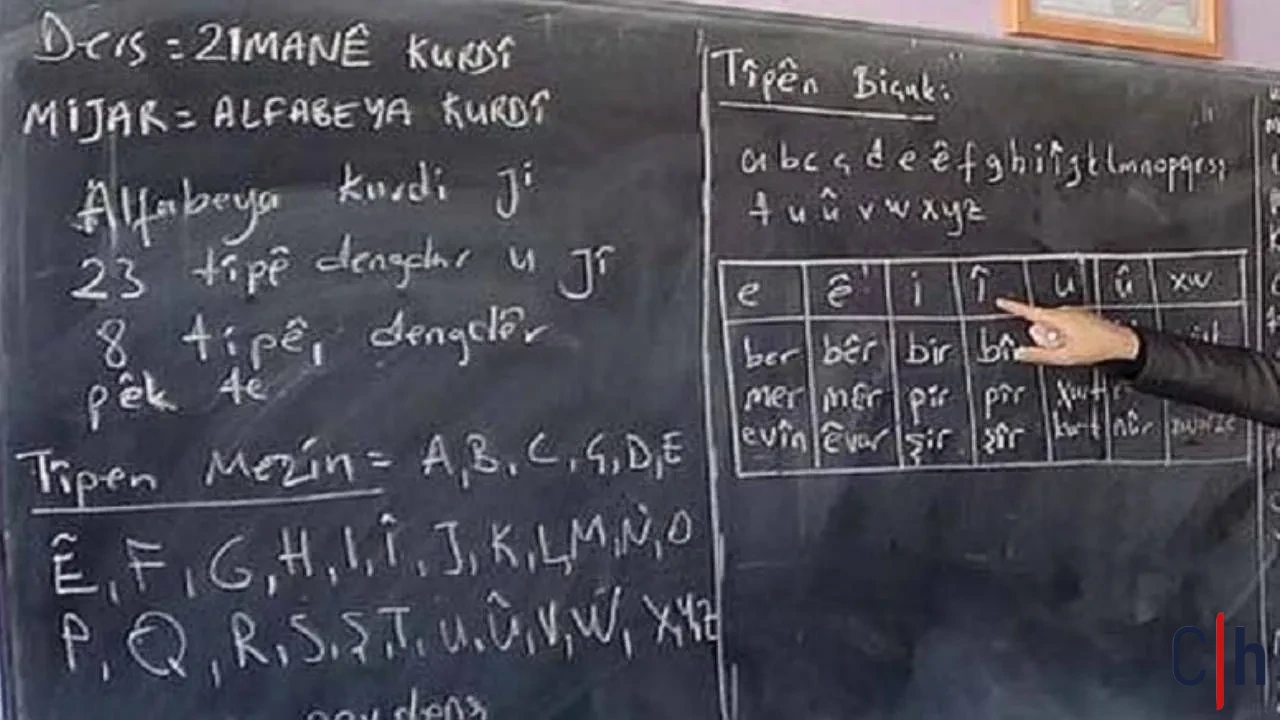 Ders = ZIMANÊ KURDÎ
MIJAR = ALFABEYA KURDÎ
Alfabeya kurdi ji
23 tîpê dengdar u jî
8 tipê, dengdêr
pêk te
Tîpen Mezin = A, B, C, Ç, D, E
Ê, F, G, H, I, Î, J, K, L, M, N, O
P, Q, R, S, Ş, T, U, Û, V, W, X, Y, Z
Tîpên Biçuk:
a b c ç d e ê f g h i î j k l m n o p q r s ş
t u û v w x y z
e ê i î u û xw
ber bêr bir
mer mêr pir pîr
evîn êvar şir şîr kurt nûr
C|h